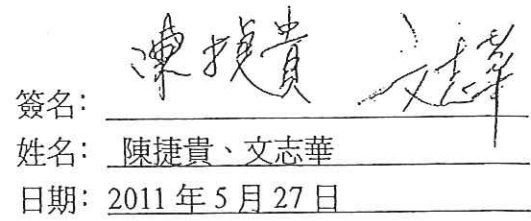 簽名：陳捷貴 文志華
姓名：陳捷貴、文志華
日期：2011年5月27日